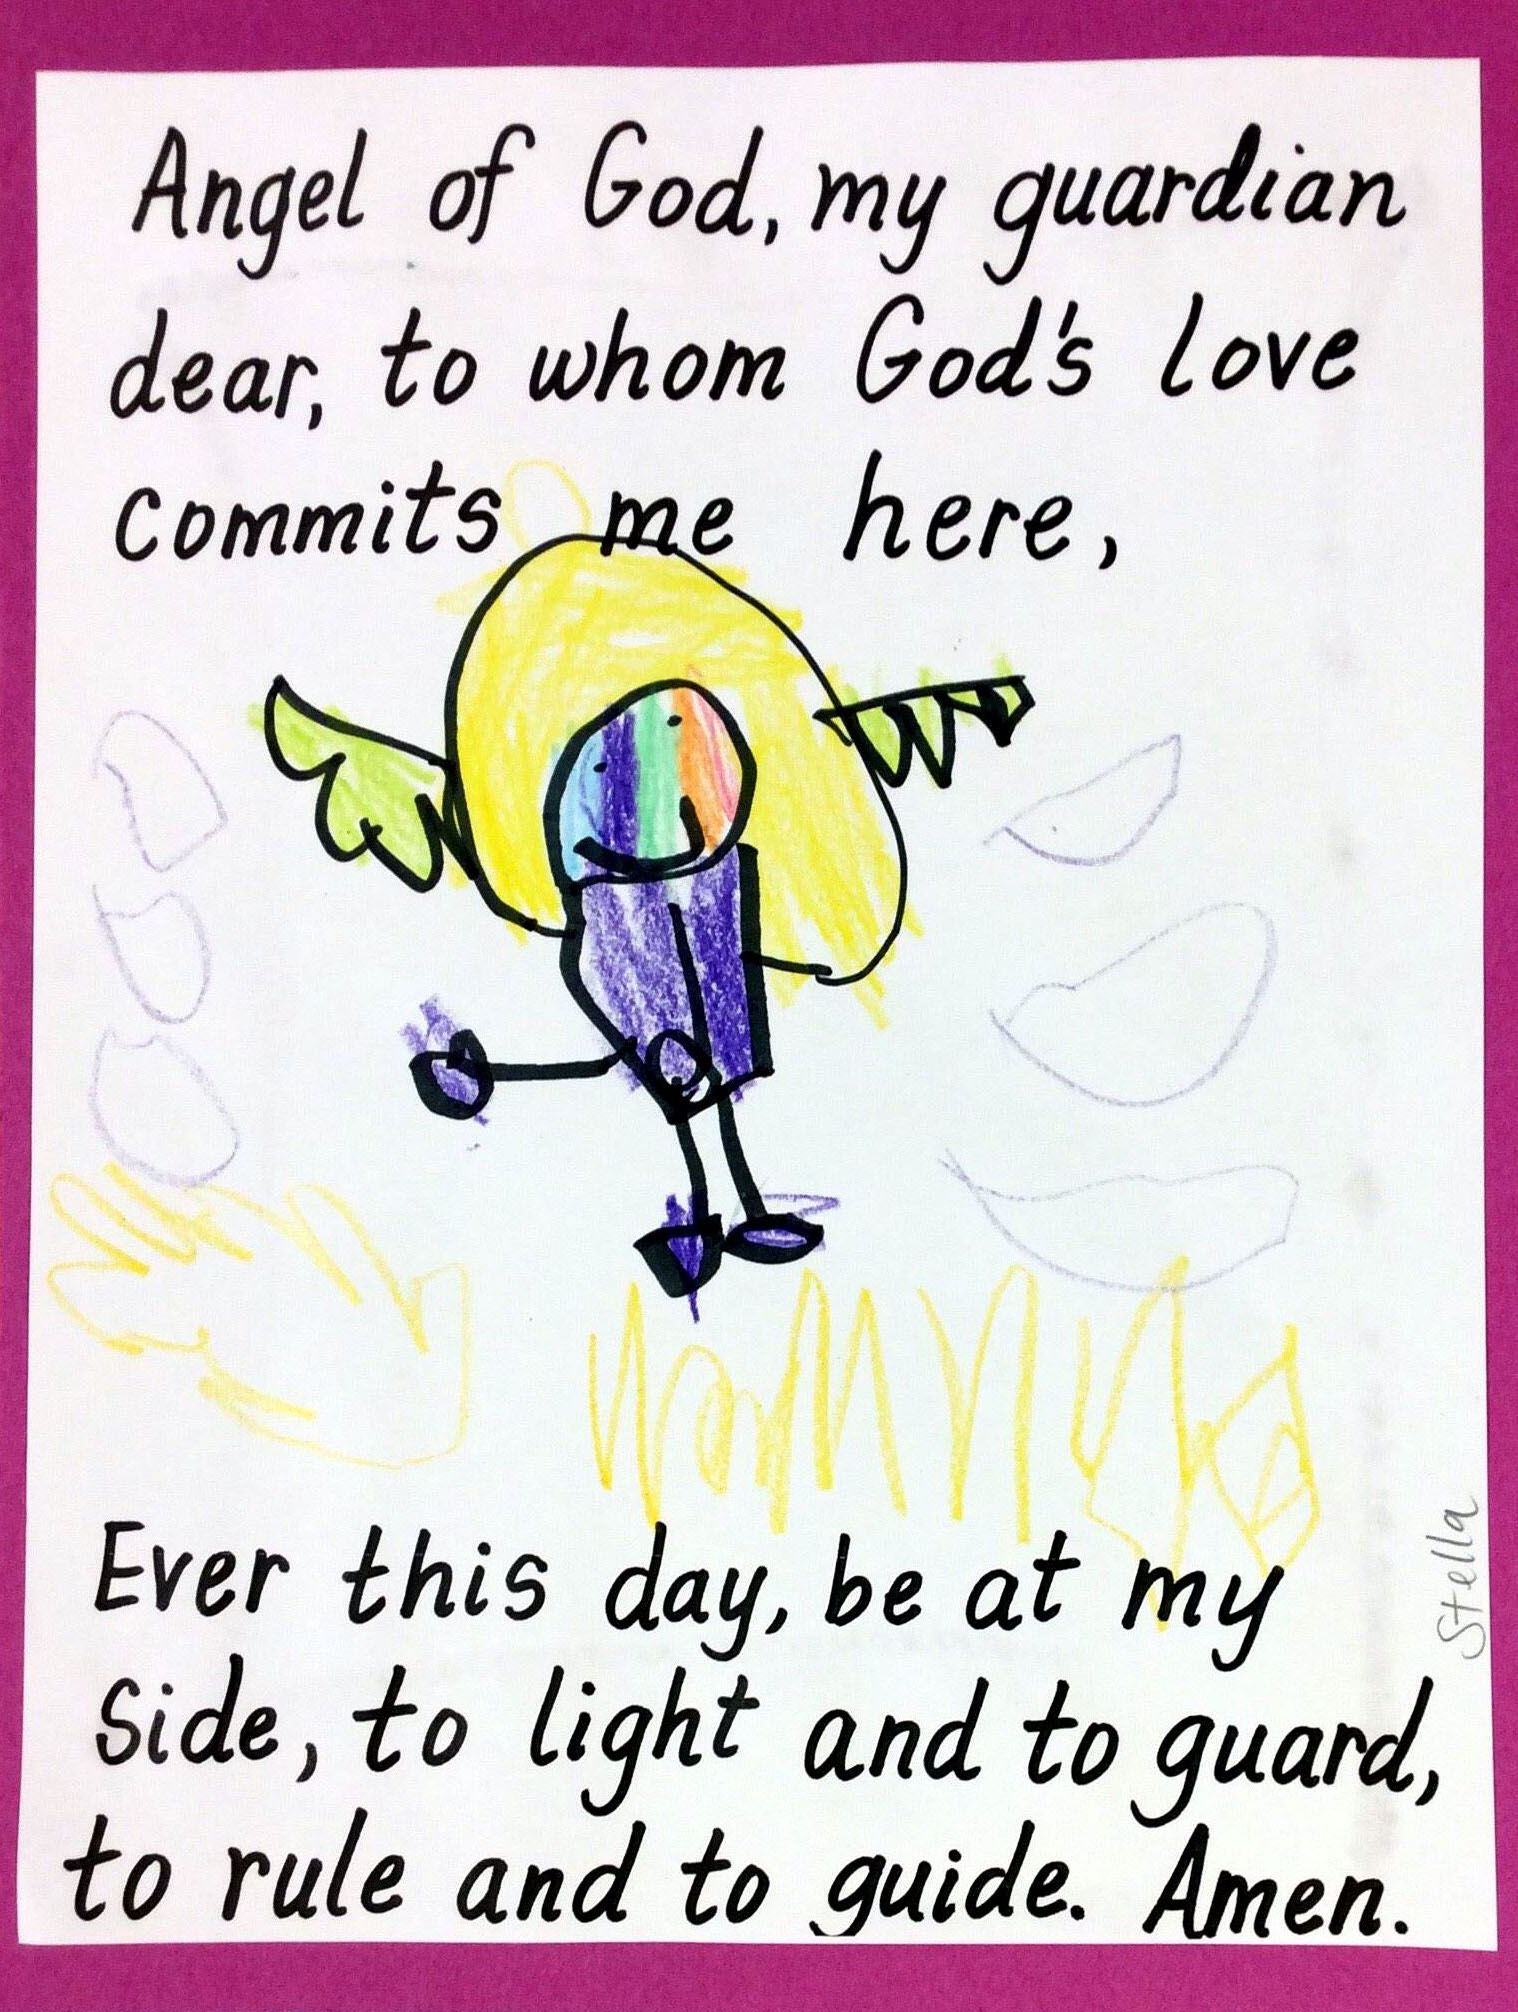 Angel of God, my guardian
dear, to whom God's love
commits me here,
Ever this day, be at my
side, to light and to guard,
to rule and to guide. Amen.
Stella